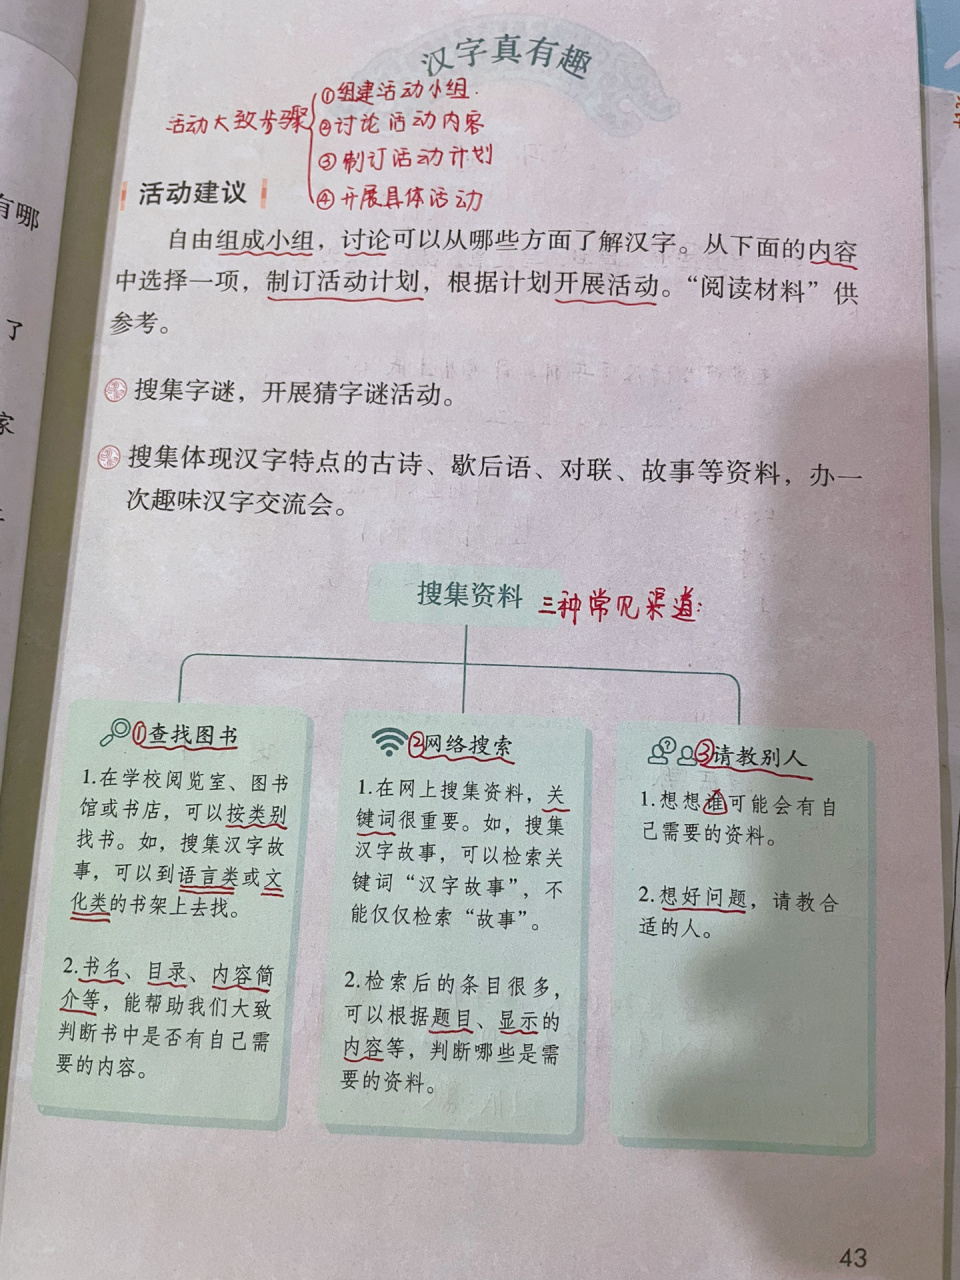 汉字真有趣
活动大致步骤
①组建活动小组.
②讨论活动内容
③制订活动计划
④开展具体活动
活动建议
自由组成小组，讨论可以从哪些方面了解汉字。从下面的内容
中选择一项，制订活动计划，根据计划开展活动。“阅读材料”供
参考。
搜集字谜，开展猜字谜活动。
搜集体现汉字特点的古诗、歇后语、对联、故事等资料，办一
次趣味汉字交流会。
搜集资料
三种常见渠道：
①查找图书
1.在学校阅览室、图书
馆或书店，可以按类别
找书。如，搜集汉字故
事，可以到语言类或文
化类的书架上去找。
2.书名、目录、内容简
介等，能帮助我们大致
判断书中是否有自己需
要的内容。
②网络搜索
1.在网上搜集资料，关
键词很重要。如，搜集
汉字故事，可以检索关
键词“汉字故事”，不
能仅仅检索“故事”。
2.检索后的条目很多，
可以根据题目、显示的
内容等，判断哪些是需
要的资料。
③请教别人
1.想想谁可能会有自
己需要的资料。
2.想好问题，请教合
适的人。
43
有哪
了
家